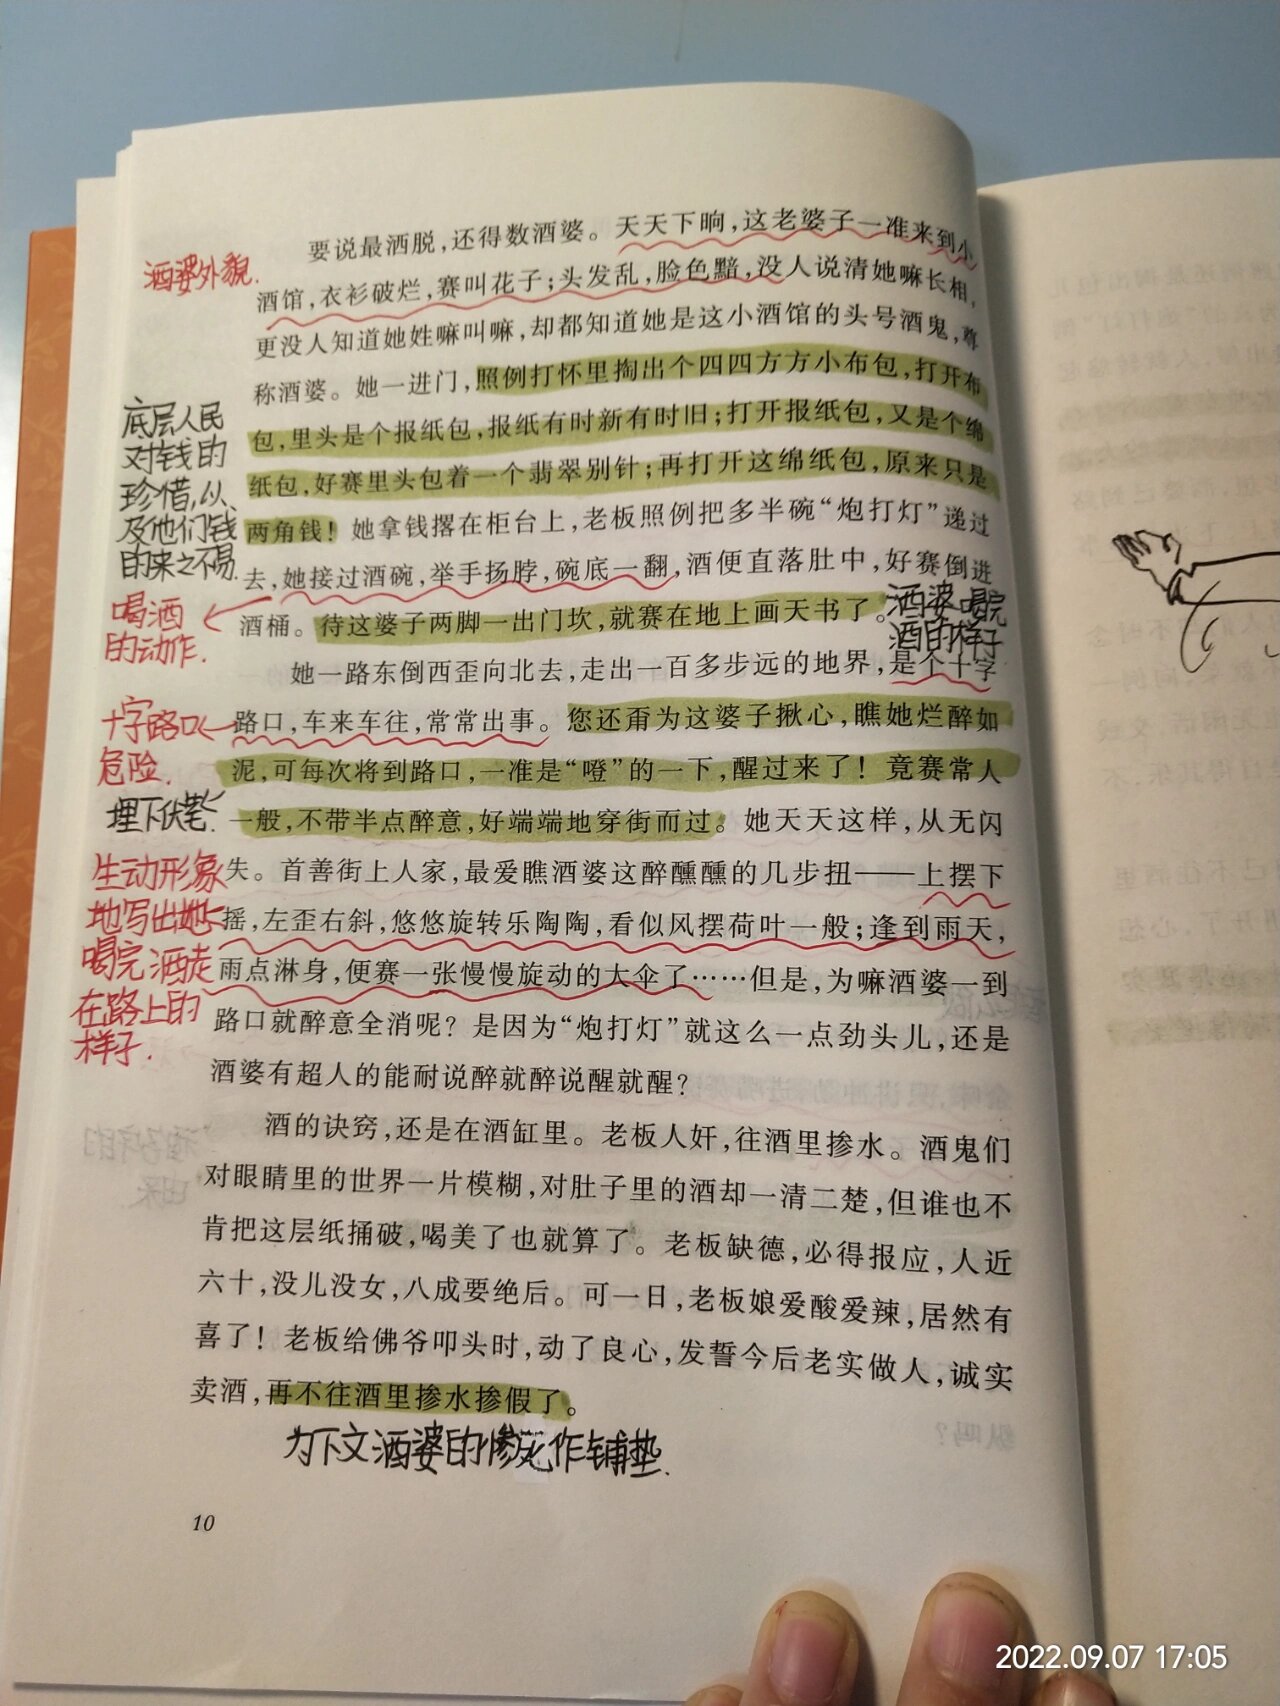 要说最洒脱，还得数酒婆。天天下晌，这老婆子一准来到小
酒馆，衣衫破烂，赛叫花子；头发乱，脸色黯，没人说清她嘛长相，
更没人知道她姓嘛叫嘛，却都知道她是这小酒馆的头号酒鬼，尊
称酒婆。她一进门，照例打怀里掏出个四四方方小布包，打开布
包，里头是个报纸包，报纸有时新有时旧；打开报纸包，又是个绵
纸包，好赛里头包着一个翡翠别针；再打开这绵纸包，原来只是
两角钱！她拿钱撂在柜台上，老板照例把多半碗“炮打灯”递过
去，她接过酒碗，举手扬脖，碗底一翻，酒便直落肚中，好赛倒进
酒桶。待这婆子两脚一出门坎，就赛在地上画天书了。
她一路东倒西歪向北去，走出一百多步远的地界，是个十字
路口，车来车往，常常出事。您还甭为这婆子揪心，瞧她烂醉如
泥，可每次将到路口，一准是“噔”的一下，醒过来了！竟赛常人
一般，不带半点醉意，好端端地穿街而过。她天天这样，从无闪
失。首善街上人家，最爱瞧酒婆这醉醺醺的几步扭——上摆下
摇，左歪右斜，悠悠旋转乐陶陶，看似风摆荷叶一般；逢到雨天，
雨点淋身，便赛一张慢慢旋动的大伞了……但是，为嘛酒婆一到
路口就醉意全消呢？是因为“炮打灯”就这么一点劲头儿，还是
酒婆有超人的能耐说醉就醉说醒就醒？
酒的诀窍，还是在酒缸里。老板人奸，往酒里掺水。酒鬼们
对眼睛里的世界一片模糊，对肚子里的酒却一清二楚，但谁也不
肯把这层纸捅破，喝美了也就算了。老板缺德，必得报应，人近
六十，没儿没女，八成要绝后。可一日，老板娘爱酸爱辣，居然有
喜了！老板给佛爷叩头时，动了良心，发誓今后老实做人，诚实
卖酒，再不往酒里掺水掺假了。
为下文酒婆的惨死作铺垫.
10
酒婆外貌.
底层人民
对钱的
珍惜,以
及他们钱
的来之不易.
喝酒
的动作.
酒婆喝完
酒的样子
十字路口
危险.
埋下伏笔.
生动形象
地写出她
喝完酒走
在路上的
样子.
2022.09.07 17:05